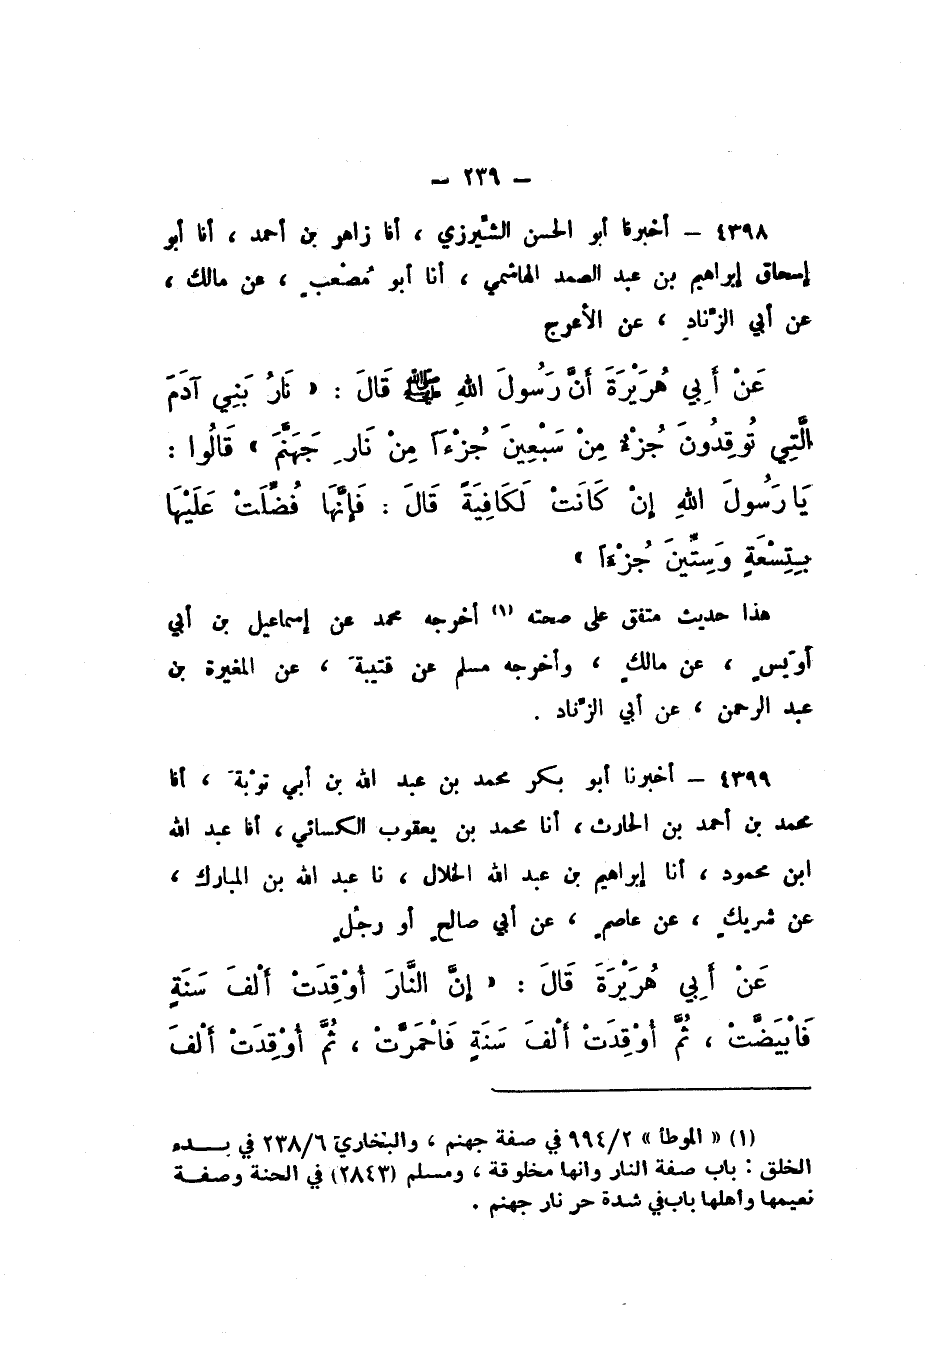 – ٢٣٩ –
٤٣٩٨ – أخبرنا أبو الحسن الشَّيرزي ، أنا زاهر بن أحمد ، أنا أبو
إسحاق إبراهيم بن عبد الصمد الهاشمي ، أنا أبو مُصْعبٍ ، عن مالك ،
عن أبي الزِّنادِ ، عن الأعرج
عَنْ أَبِي هُرَيْرَةَ أَنَّ رَسُولَ اللهِ ﷺ قَالَ : « نَارُ بَنِي آدَمَ
الَّتِي تُوقِدُونَ جُزْءٌ مِنْ سَبْعِينَ جُزْءَاً مِنْ نَارِ جَهَنَّمَ » قَالُوا :
يَا رَسُولَ اللهِ إِنْ كَانَتْ لَكَافِيَةً قَالَ : فَإِنَّهَا فُضِّلَتْ عَلَيْهَا
بِتِسْعَةٍ وَسِتِّينَ جُزْءَاً »
هذا حديث متفق على صحته (١) أخرجه محمد عن إسماعيل بن أبي
أُوَيسٍ ، عن مالكٍ ، وأخرجه مسلم عن قتيبةَ ، عن المغيرة بن
عبد الرحمن ، عن أبي الزّناد .
٤٣٩٩ – أخبرنا أبو بكر محمد بن عبد الله بن أبي توْبةَ ، أنا
محمد بن أحمد بن الحارث ، أنا محمد بن يعقوب الكسائي ، أنا عبد الله
ابن محمود ، أنا إبراهيم بن عبد الله الخلال ، نا عبد الله بن المبارك ،
عن شريكٍ ، عن عاصمٍ ، عن أبي صالحٍ أو رجُلٍ
عَنْ أَبِي هُرَيْرَةَ قَالَ : « إِنَّ النَّارَ أُوْقِدَتْ أَلْفَ سَنَةٍ
فَابْيَضَّتْ ، ثُمَّ أُوْقِدَتْ أَلْفَ سَنَةٍ فَاحْمَرَّتْ ، ثُمَّ أُوْقِدَتْ أَلْفَ
(١) « الموطأ » ٩٩٤/٢ في صفة جهنم ، والبخاري ٢٣٨/٦ في بـــدء
الخلق : باب صفة النار وانها مخلوقة ، ومسلم (٢٨٤٣) في الجنة وصفـة
نعيمها وأهلها باب في شدة حر نار جهنم .